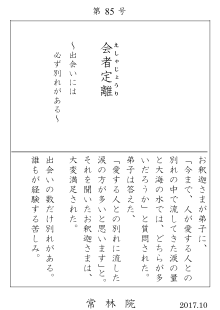 第 85 号
会者定離
えしゃじょうり
～出会いには
必ず別れがある～
お釈迦さまが弟子に、
「今まで、人が愛する人との
別れの中で流してきた涙の量
と大海の水では、どちらが多
いだろうか」と質問された。
弟子は答えた、
「愛する人との別れに流した
涙の方が多いと思います」と。
それを聞いたお釈迦さまは、
大変満足された。
出会いの数だけ別れがある。
誰もが経験する苦しみ。
常 林 院
2017.10